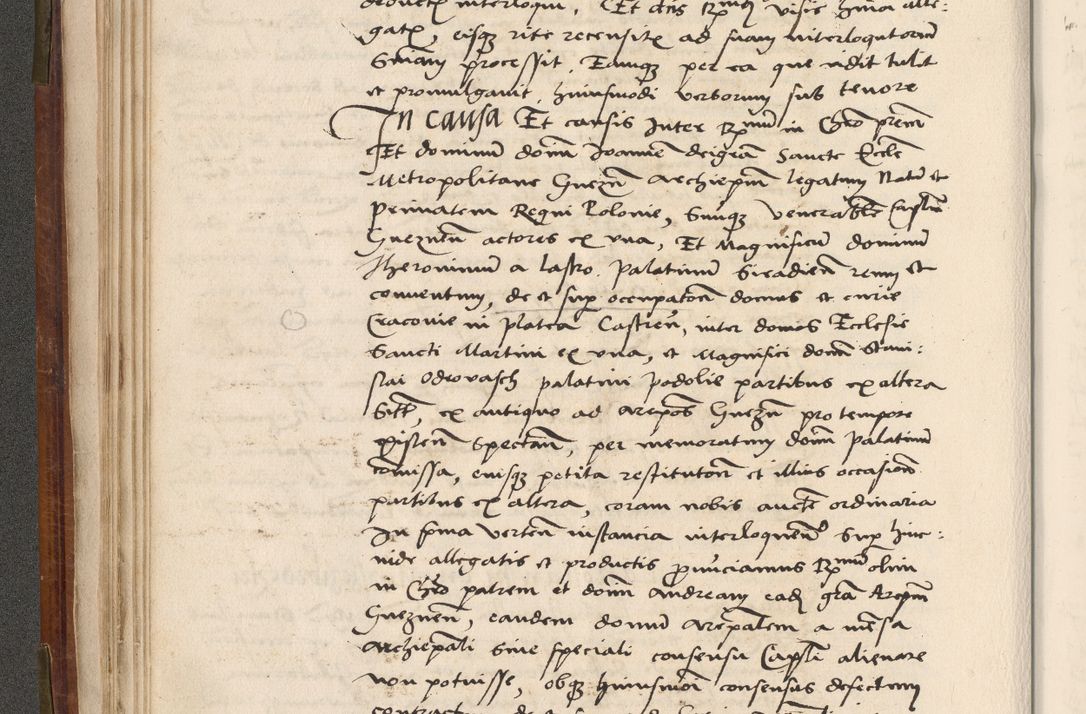 deductis interloqui. Et dictis Rmdi visis hinc alle:
gatis, eisq3 rite recensitis ad suam interloqutoriam
Sniam processit. Eamq3 per ea que vidit tulit
et promulgavit. huiusmodi verborum sub tenore
In causa Et causis Inter Rmum in Chro prem
Et dominum donm Ioannem deigram Sancte Eccle
Metropolitane Gnezn Archiepm legatum Natum et
Primatem Regni Polonie, Suumq3 venerabile Caplm
Gneznen actores ex una, Et Magnificum dominum
Iheronimum a lasko. Palatinum Siradien reum et
conventum, de et sup occupatone domus et curie
Cracovie in platea Castren, inter domos Ecclesie
Sancti Martini ex una, et Magnifici domi Stani:
slai Odrovasch palatini Podolie partibus ex altera
Sitt, ex antiquo ad Arepos Gnezn pro tempore
existen Spectan, per memoratum donm Palatinum
comissa, eiusq3 petita restitutone et illius occasione
partibus ex altera, coram nobis aucte ordinaria
In forma verten instancia interloquen Sup hinc:
inde allegatis et productis pnunciamus Rmum olim
in Chro patrem et donm Andream eadem gra Arepm
Gneznen, eandem domum Arepalem a mensa
Archiepali Sine speciali consensu Capli alienare
non potuisse, obq3 huiusmoi consensus defectum